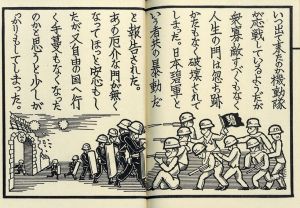 いつ出て来たのか機動隊
が応戦しているようだが
衆寡敵すべくもなく
人生の門は忽ち跡
かたもなく破壊されて
しまった。日本碧軍と
いう者共の暴動だ
と報告された。
あの厄介な門が無く
なってほっと安心もし
たが又自由の国へ行
く手蔓もなくなった
のかと思うと少しが
っかりもしてしまった。